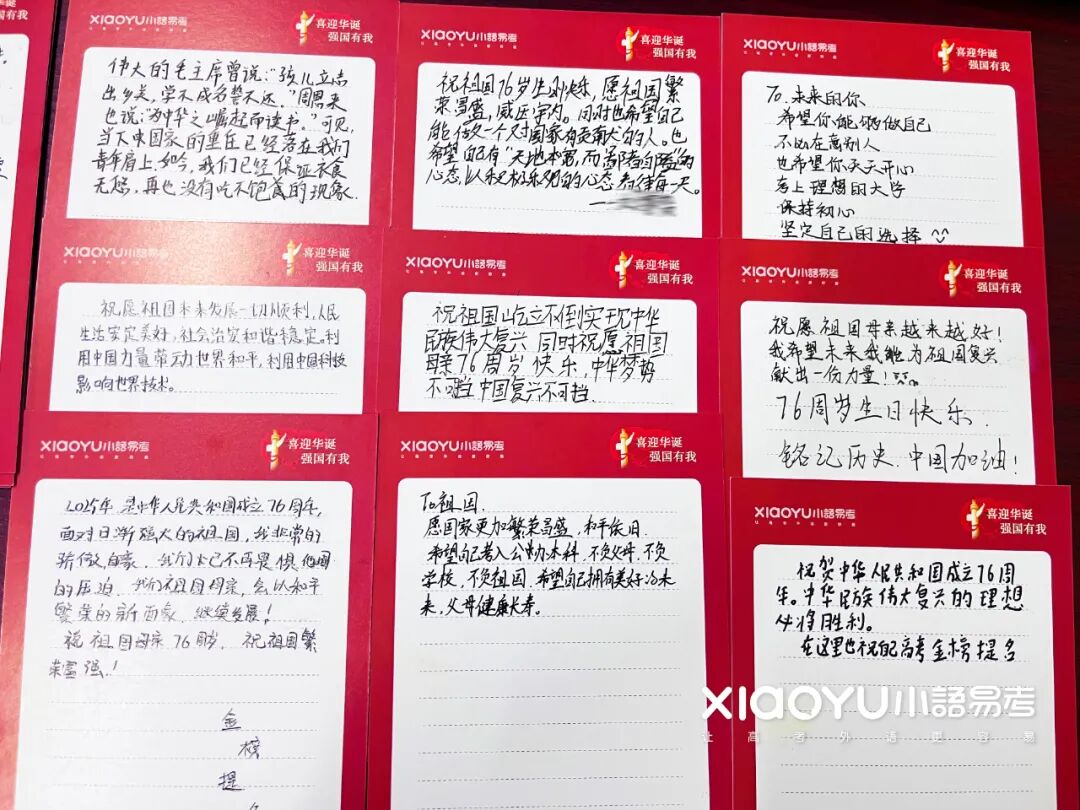 XIAOYU小語易考
喜迎华诞
强国有我
伟大的毛主席曾说："孩儿立志
出乡关，学不成名誓不还。"周恩来
也说："为中华之崛起而读书。"可见，
当下中国家的重任已经落在我们
青年肩上.如今，我们已经保证衣食
无愁，再也没有吃不饱食的现象.
XIAOYU小語易考
喜迎华诞
强国有我
祝祖国76岁生日快乐，愿祖国繁
荣富盛，威压宇内。同时也希望自己
能做一个对国家有贡献的人。也
希望自己有"天地本宽，而鄙者自隘"的
心态，以积极乐观的心态看待每一天。
XIAOYU小語易考
喜迎华诞
强国有我
To.未来的你
希望你能够做自己
不必在意别人
也希望你天天开心
考上理想的大学
保持初心
坚定自己的选择
XIAOYU小語易考
喜迎华诞
强国有我
祝愿祖国未来发展一切顺利，人民
生活安定美好，社会治安和谐稳定。利
用中国力量带动世界和平，利用中国科技
影响世界技术。
XIAOYU小語易考
喜迎华诞
强国有我
祝祖国屹立不倒实现中华
民族伟大复兴 同时祝愿祖国
母亲76周岁快乐，中华梦势
不可挡 中国复兴不可挡.
XIAOYU小語易考
喜迎华诞
强国有我
祝愿祖国母亲越来越好！
我希望未来我能为祖国复兴
献出一份力量！
76周岁生日快乐.
铭记历史.中国加油！
XIAOYU小語易考
喜迎华诞
强国有我
2025年，是中华人民共和国成立76周年，
面对日渐强大的祖国，我非常的
骄傲自豪，我们已不再畏惧他国
的压迫，我们祖国母亲，会以和平
繁荣的新面家，继续发展！
祝祖国母亲76周岁，祝祖国繁
荣富强！
金
榜
提
XIAOYU小語易考
喜迎华诞
强国有我
To祖国.
愿国家更加繁荣昌盛，和平依旧.
希望自己考入公办本科，不负父母，不负
学校，不负祖国.希望自己拥有美好的未
来，父母健康长寿。
XIAOYU小語易考
喜迎华诞
强国有我
祝贺中华人民共和国成立76周
年。中华民族伟大复兴的理想
必将胜利。
在这里也祝自己高考金榜提名
XIAOYU小語易考
让高考外语更容易